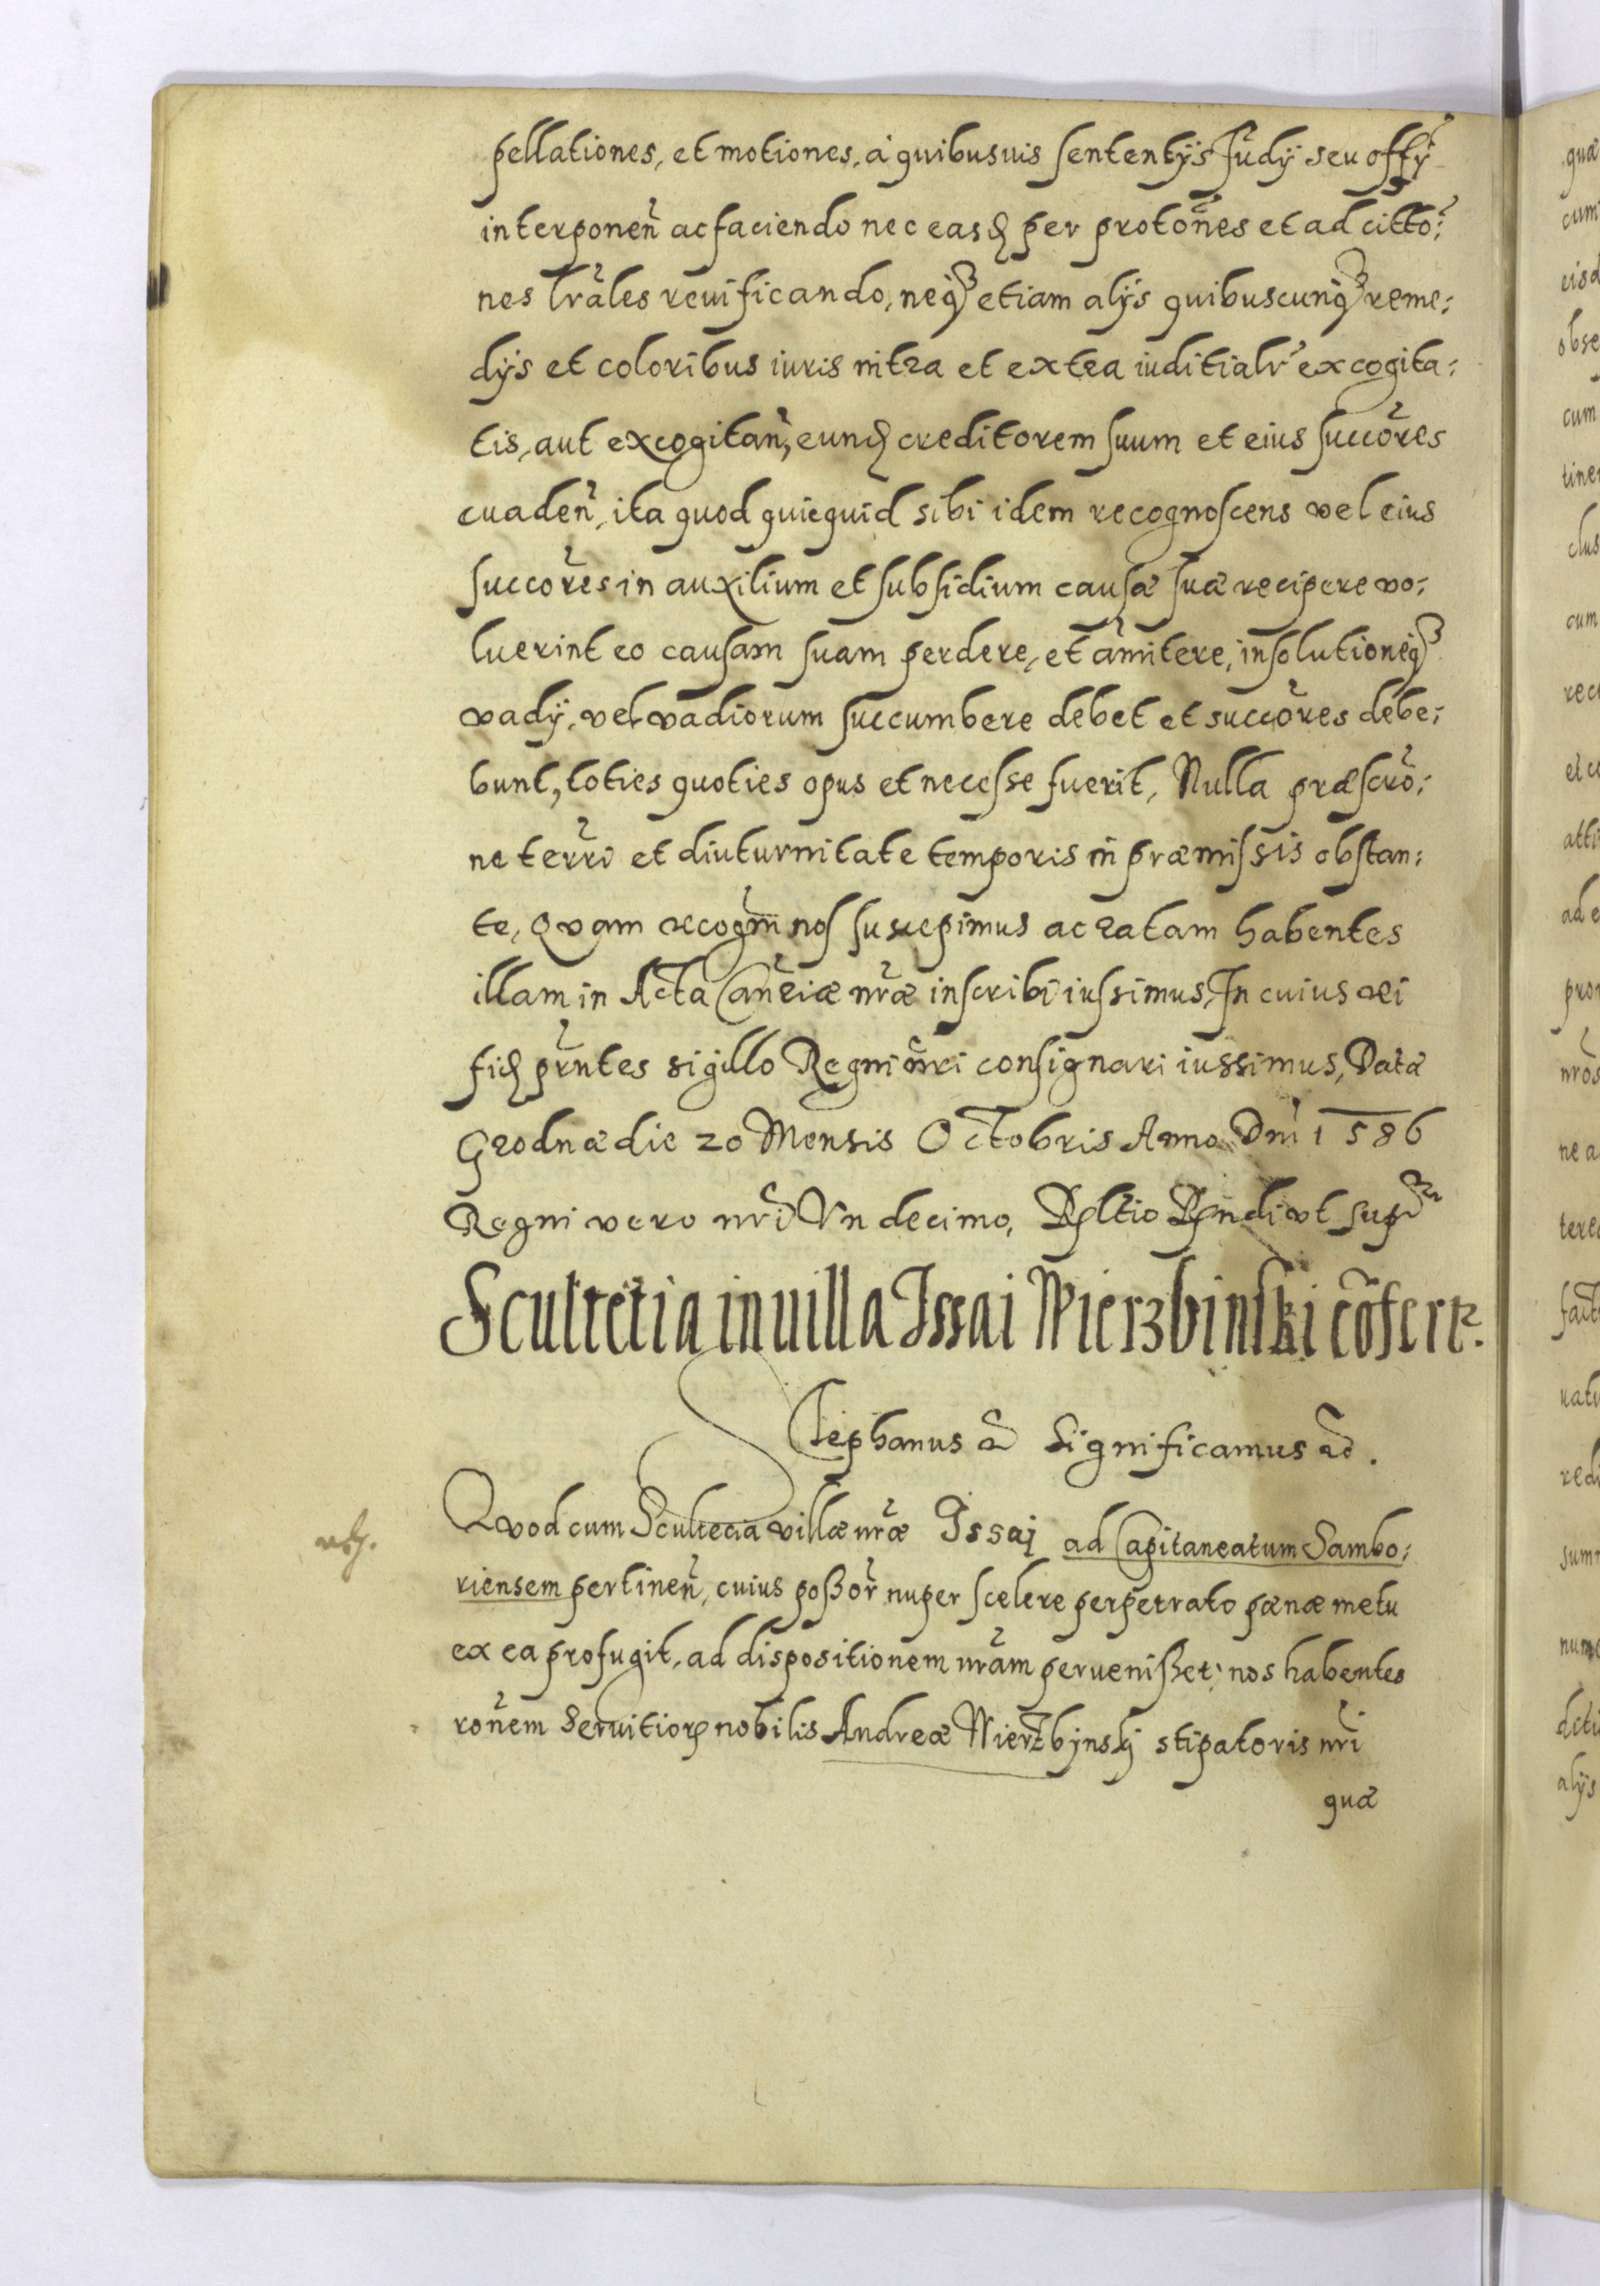 pellationes, et motiones, a quibusuis sententijs Judÿ seu offÿ
interponeñ ac faciendo nec easđ per protoñes et ad citto:
nes lrãles reuificando, neqȝ etiam alijs quibuscunqȝ reme:
dijs et coloribus iuris intra et extra iuditialr̃ excogita:
tis, aut excogitañ, eunđ creditorem suum et eius succõres
euadeñ, ita quod quicquid sibi idem recognoscens vel eius
succõres in auxilium et subsidium causæ suæ recipere vo:
luerint eo causam suam perdere, et amittere, in solutioneqȝ
vadÿ, vel vadiorum succumbere debet et succõres debe:
bunt, toties quoties opus et necesse fuerit, Nulla præscrõ:
ne terrĩ et diuturnitate temporis in præmissis obstan:
te, Quam recogñ nos suscepimus ac ratam habentes
illam in Acta Cañriæ nr̃æ inscribi iussimus, In cuius rei
fiđ pr̃ntes sigillo Regni nr̃i consignari iussimus, Datæ
Grodnæ die 20 Mensis Octobris Anno Dni 1586
Regni vero nr̃i Vndecimo, Rltio Rndi vt supr
Scultetia in uilla Issai Wierzbinski cõfertr.
Stephanus &c Significamus &c.
Quod cum Scultecia villæ nr̃æ Issaj ad Capitaneatum Sambo:
riensem pertineñ, cuius poßor̃ nuper scelere perpetrato pænæ metu
ex ea profugit, ad dispositionem nr̃am peruenißet; nos habentes
roñem Seruitioꝝ nobilis Andreæ Wierzbÿnskj stipatoris nr̃i
quæ